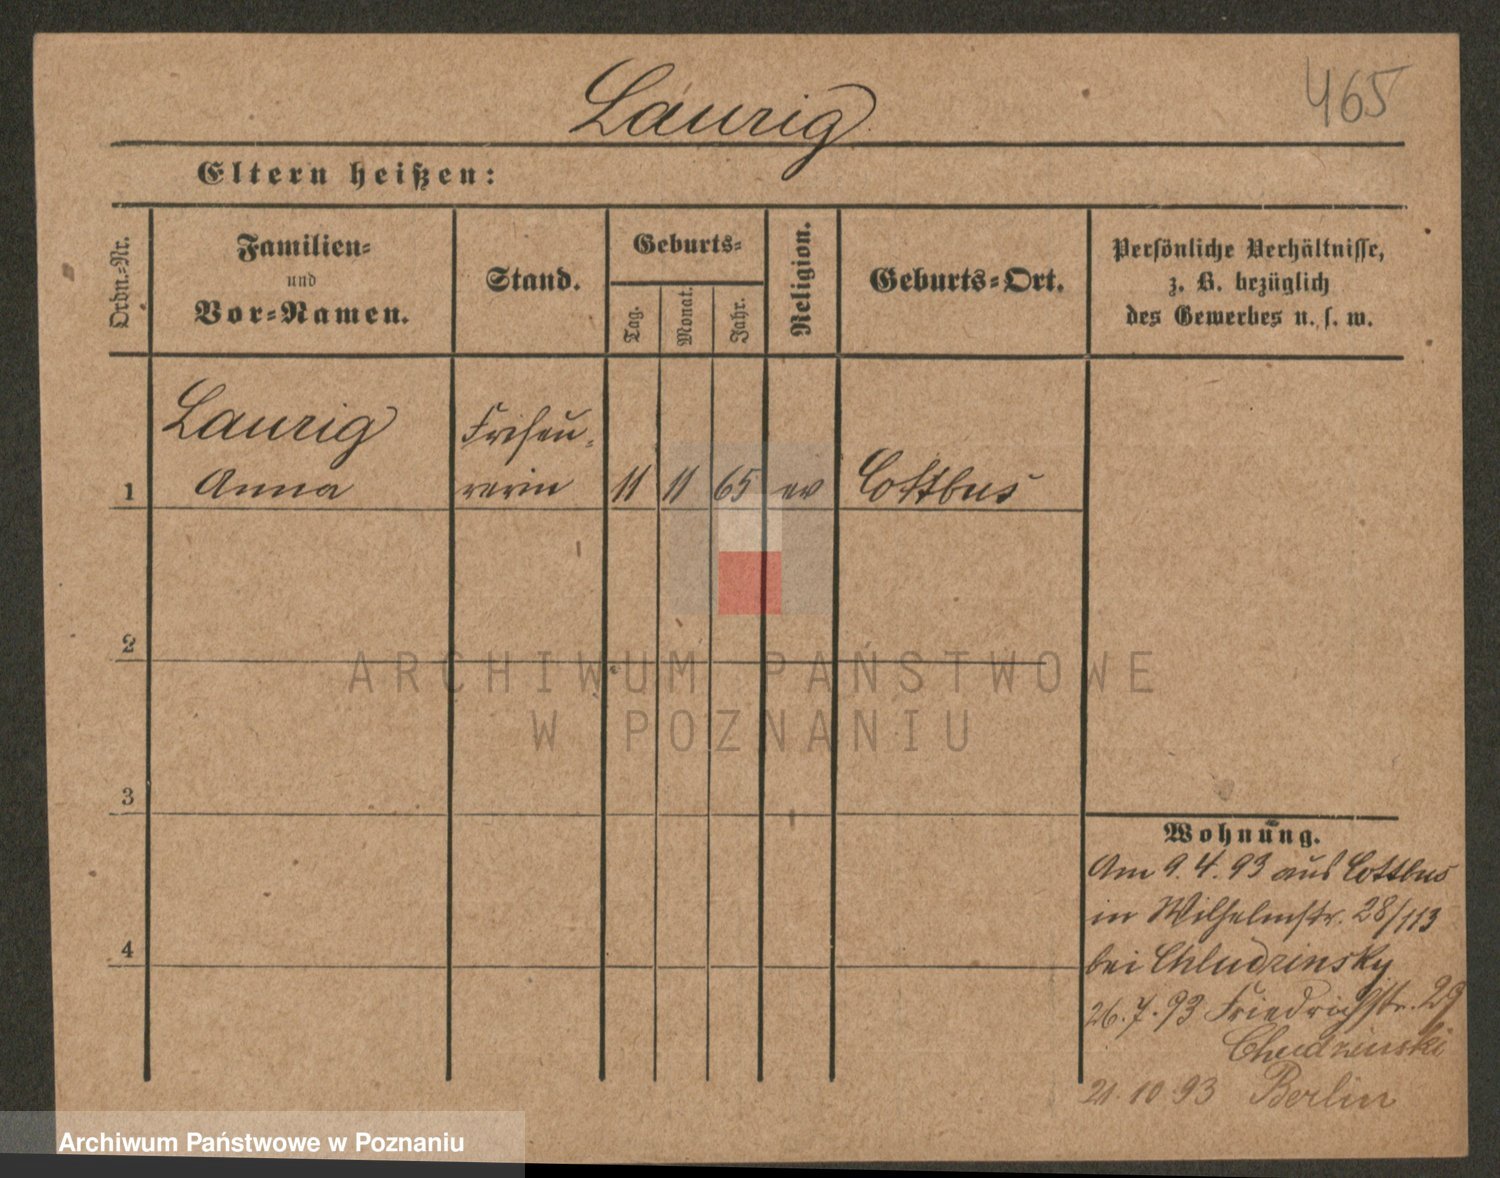 Laurig
465
Eltern heißen:
Ordn.-Nr.
Familien-
und
Vor-Namen.
Stand.
Geburts-
Tag.
Monat.
Jahr.
Religion.
Geburts-Ort.
Persönliche Verhältnisse,
z. B. bezüglich
des Gewerbes u. s. w.
Laurig
Anna
Friseu-
rerin
1
11 11 65 ev Cottbus
2
3
4
Wohnung.
Am 9. 4. 93 aus Cottbus
in Wilhelmstr. 28/113
bei Chludzinsky
26. 7. 93 Friedrichstr. 29
Chudzinski
21 10 93 Berlin
ARCHIWUM PAŃSTWOWE
W POZNANIU
Archiwum Państwowe w Poznaniu